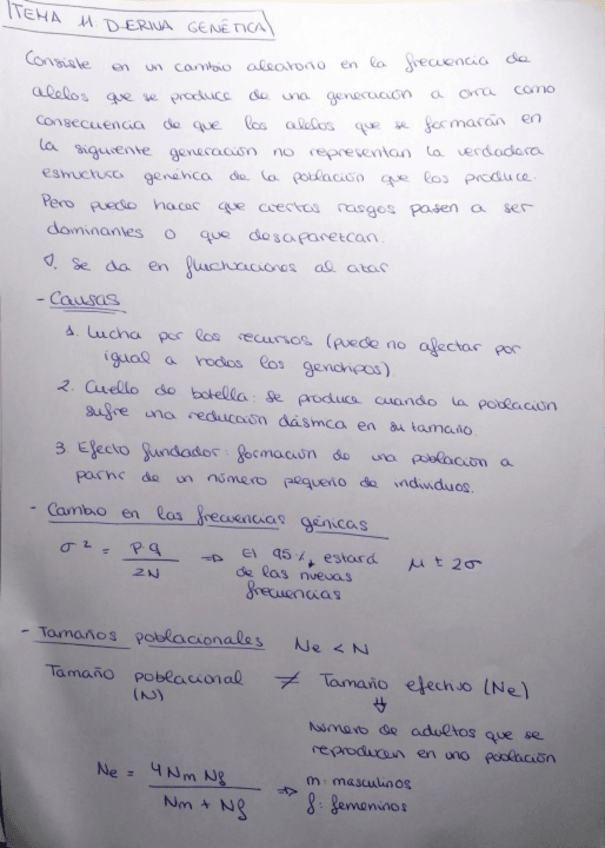 TEMA 11 DERIVA GENÉTICA
Consiste en un cambio aleatorio en la frecuencia de
alelos que se produce de una generación a otra como
consecuencia de que los alelos que se formarán en
la siguiente generación no representan la verdadera
estructura genética de la población que los produce.
Pero puede hacer que ciertos rasgos pasen a ser
dominantes o que desaparezcan.
Se da en fluctuaciones al azar
- Causas
1. Lucha por los recursos (puede no afectar por
igual a todos los genotipos)
2. Cuello de botella: se produce cuando la población
sufre una reducción drásmica en su tamaño.
3. Efecto fundador: formación de una población a
partir de un número pequeño de individuos.
- Cambio en las frecuencias génicas
σ² = p·q / 2N ⇒ El 95%, estará de las nuevas frecuencias μ ± 2σ
- Tamaños poblacionales Ne < N
Tamaño poblacional (N) ≠ Tamaño efectivo (Ne)
⇓
Número de adultos que se
reproducen en una población
Ne = 4 Nm Nf / Nm + Nf ⇒ m: masculinos
f: femeninos